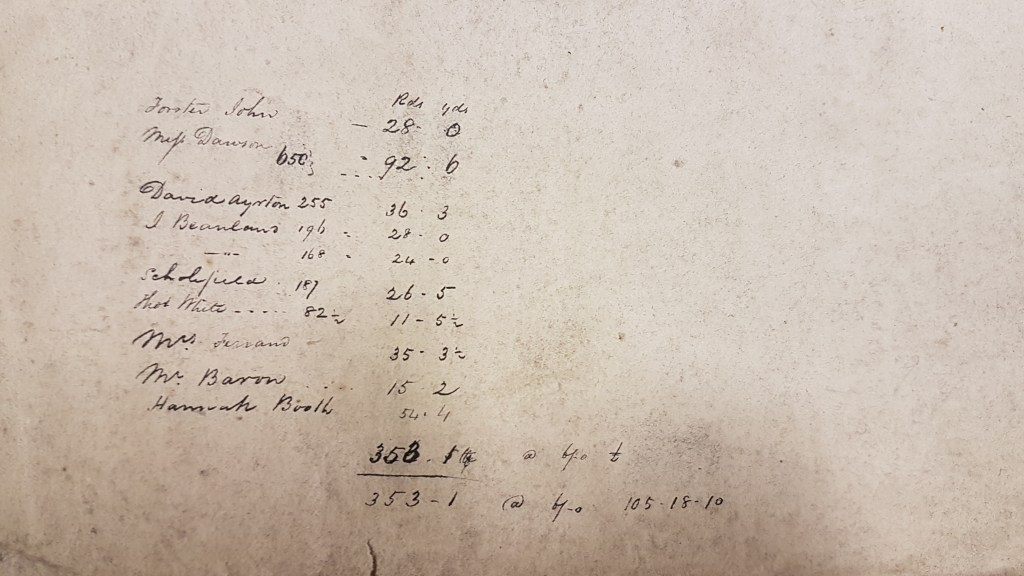 Rds yds
Forster John — 28 - 0
Mess Dawson
650 .... 92 : 6
David Ayrton 255 36 . 3
J Beanland 196 - 28 - 0
—"— 168 - 24 - 0
Scholefield . 187 26 - 5
Thos White ----- 82½ 11 - 5½
Mrs Ferrand 35 - 3½
Mr Baron .... 15 . 2
Hannah Booth 54 . 4
353 . 1 @ 6/-0
353 - 1 @ 6/-0 105-18-10